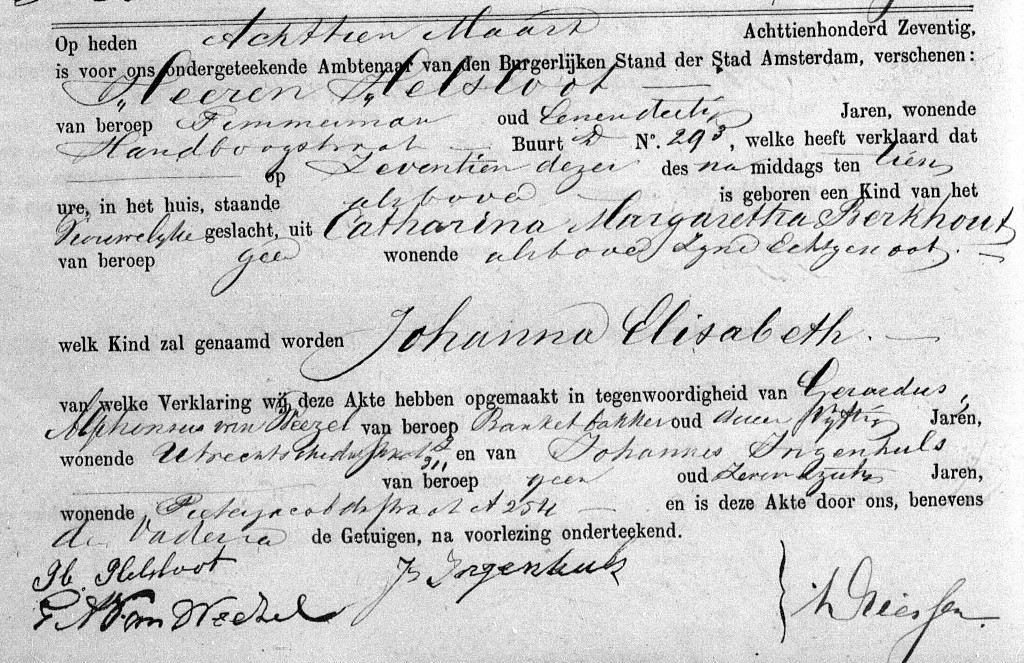 Op heden Achttien Maart Achttienhonderd Zeventig,
is voor ons ondergeteekende Ambtenaar van den Burgerlijken Stand der Stad Amsterdam, verschenen:
Heeren Helsloot
van beroep Timmerman oud Eenendertig Jaren, wonende
Handboogstraat Buurt D No. 293, welke heeft verklaard dat
op Zeventien dezer des na middags ten tien
ure, in het huis, staande alsboven is geboren een Kind van het
Vrouwelijke geslacht, uit Catharina Margaretha Berkhout
van beroep geen wonende alsboven Zijne Echtgenoot.
welk Kind zal genaamd worden Johanna Elisabeth.
van welke Verklaring wij deze Akte hebben opgemaakt in tegenwoordigheid van Gerardus
Alphonsus van Weezel van beroep Banketbakker oud Jaren,
wonende en van Johannes Ingenhuls
van beroep geen oud Jaren,
wonende Pieterjacobdstraat A 254 en is deze Akte door ons, benevens
de Vader en de Getuigen, na voorlezing onderteekend.
H. Helsloot J Ingenhuls
G A Van Weezel